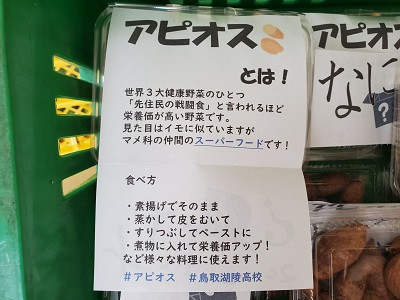 アピオス
とは！
世界３大健康野菜のひとつ
「先住民の戦闘食」と言われるほど
栄養価が高い野菜です。
見た目はイモに似ていますが
マメ科の仲間のスーパーフードです！
食べ方
・素揚げでそのまま
・蒸かして皮をむいて
・すりつぶしてペーストに
・煮物に入れて栄養価アップ！
など様々な料理に使えます！
＃アピオス　＃鳥取湖陵高校
アピオ
なに
？